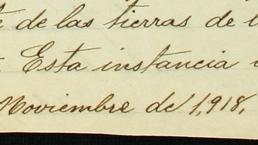 de las tierras de
Esta instancia
Noviembre de 1,918,